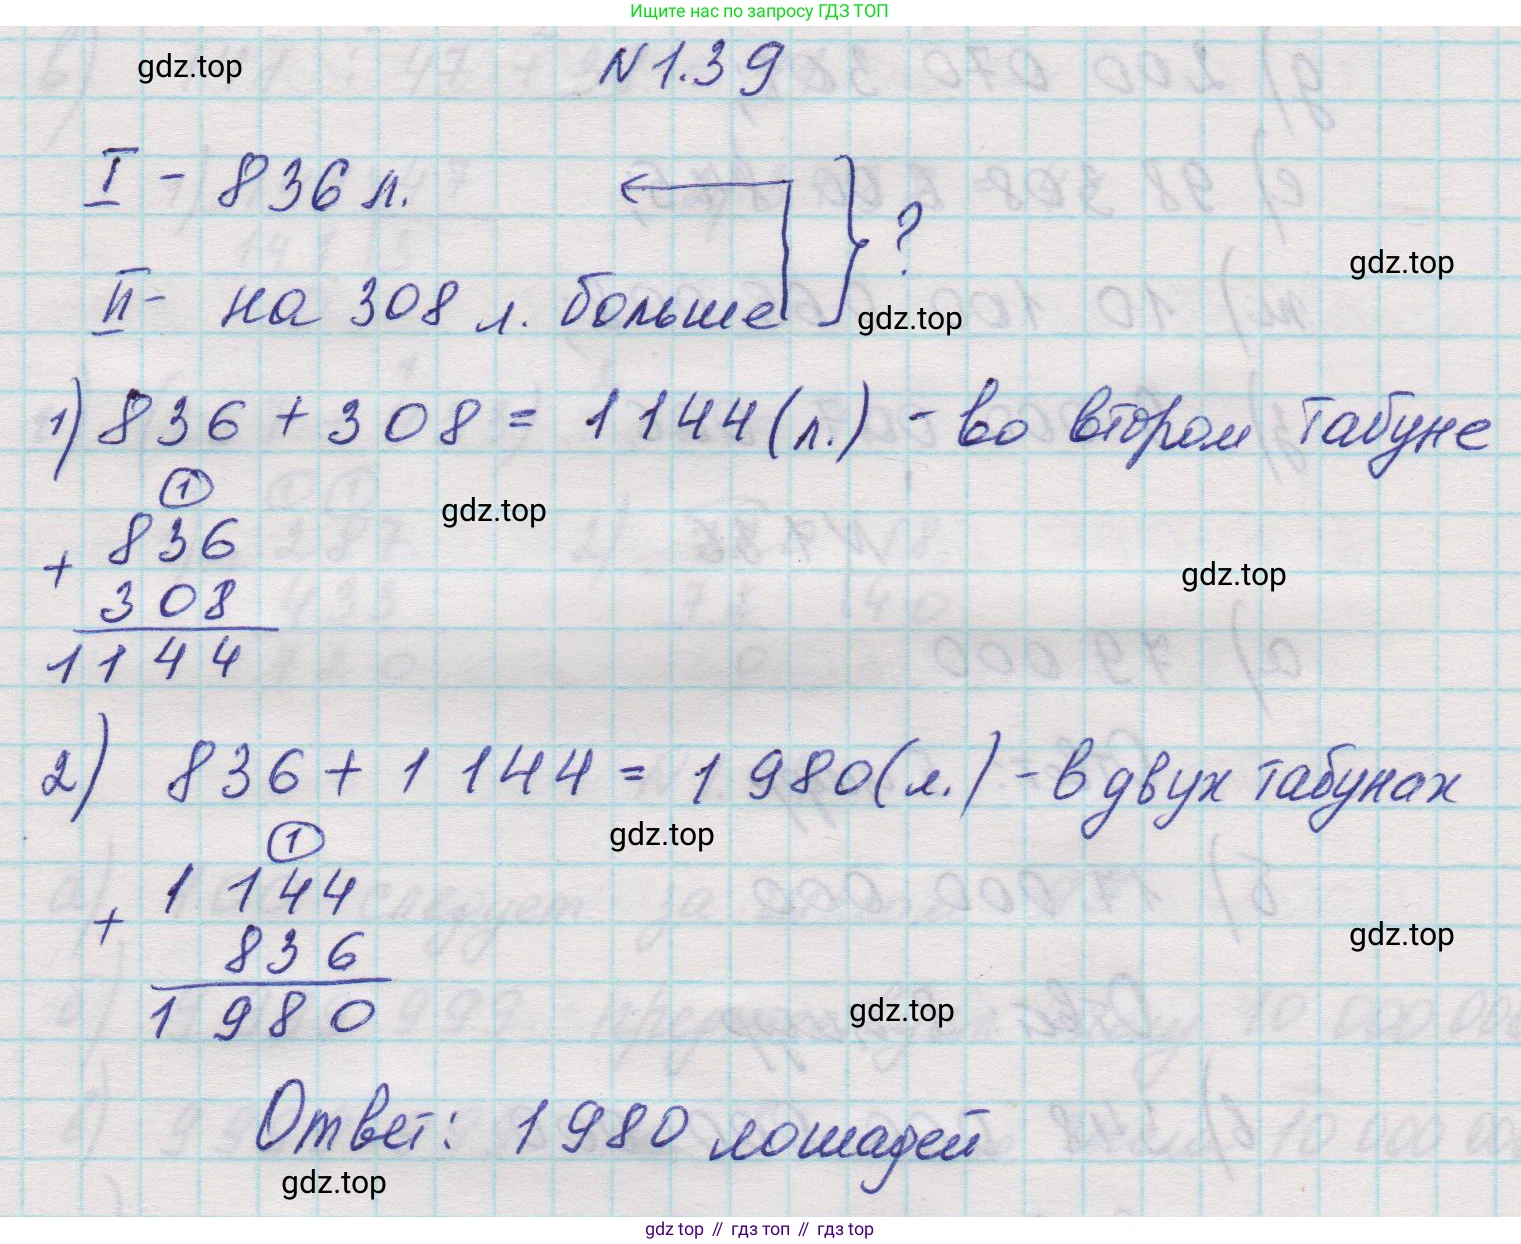 Ищите нас по запросу ГДЗ ТОП
gdz.top
N 1.39
I - 836 л.
?
gdz.top
II - на 308 л. больше
gdz.top
1) 836 + 308 = 1144 (л.) - во втором табуне
1
gdz.top
836
+
gdz.top
308
1144
2) 836 + 1 144 = 1 980 (л.) - в двух табунах
1
gdz.top
1 144
+
836
gdz.top
1 980
gdz.top
Ответ: 1 980 лошадей
gdz.top
gdz top // гдз топ // гдз top